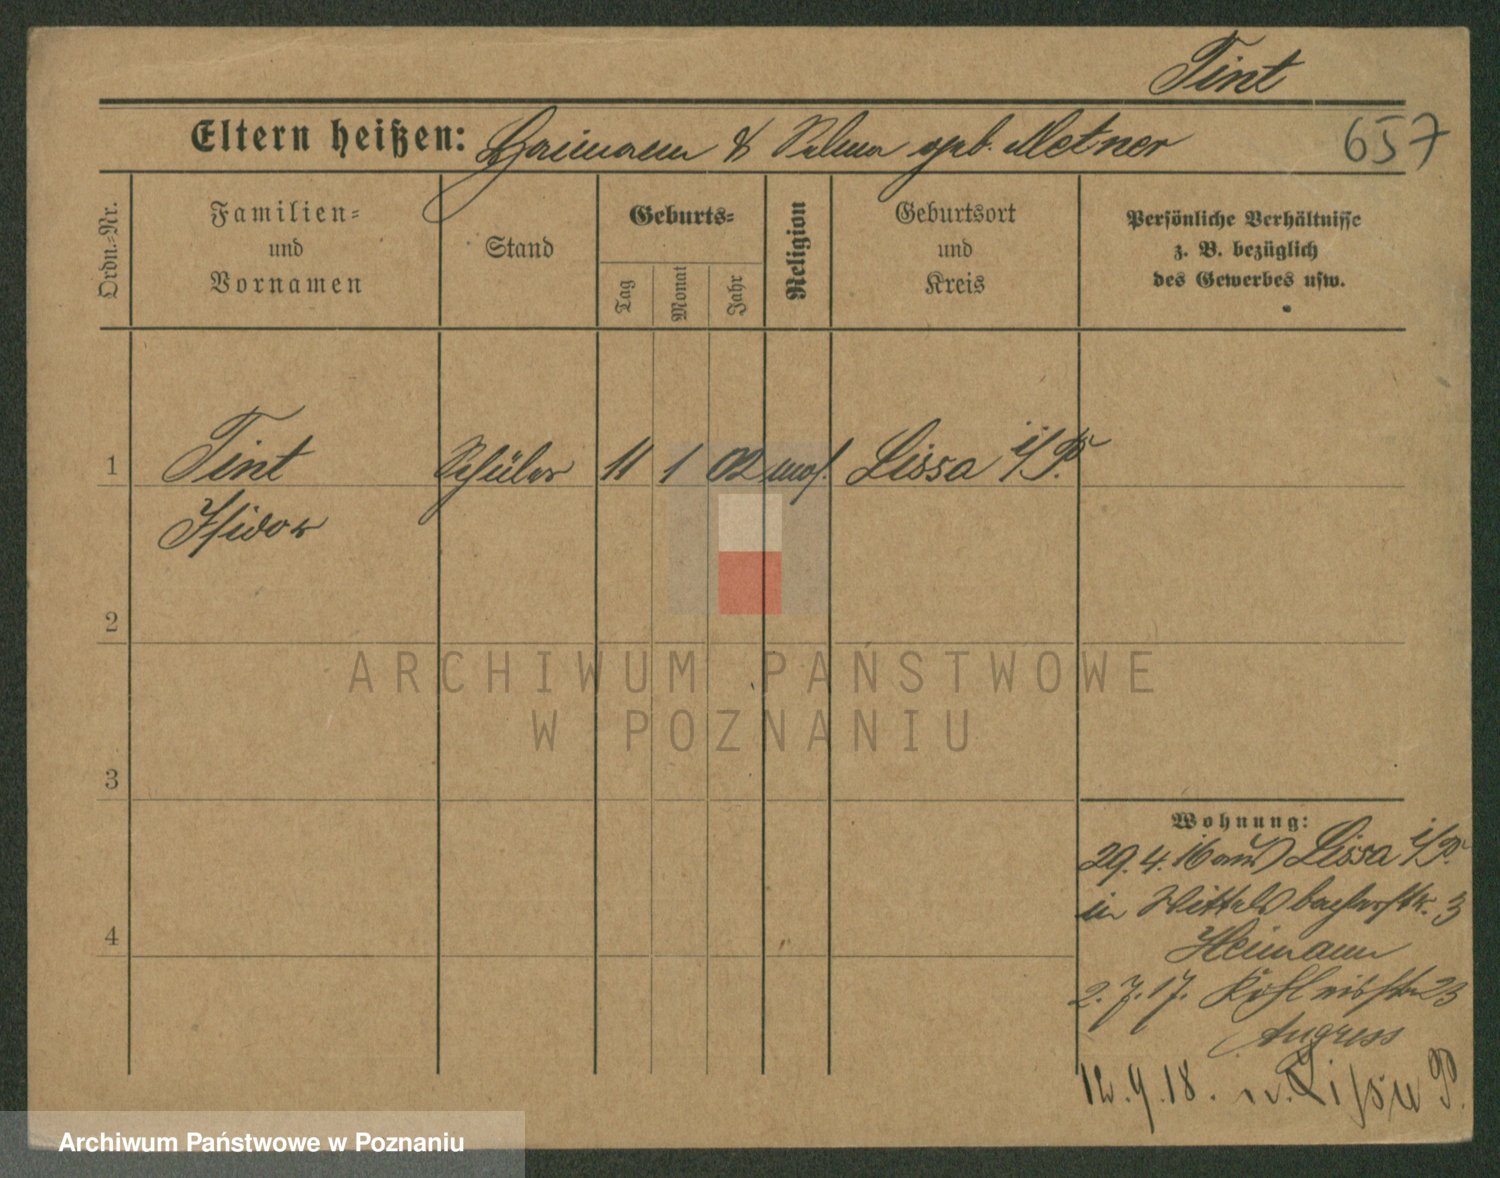 Tint
Eltern heißen: Haimann & Selma geb. Metner
657
Ordn.-Nr.
Familien-
und
Vornamen
Stand
Geburts-
Tag
Monat
Jahr
Religion
Geburtsort
und
Kreis
Persönliche Verhältnisse
z. B. bezüglich
des Gewerbes usw.
1
Tint
Schüler
11
1
02
mos.
Lissa i/P.
Isidor
2
ARCHIWUM PAŃSTWOWE
W POZNANIU
3
Wohnung:
29.4.16 aus Lissa i/P.
in Wittelsbacherstr. 3
4
Heimann
2.7.17. 23
Angress
12.9.18. n. Lissa P.
Archiwum Państwowe w Poznaniu